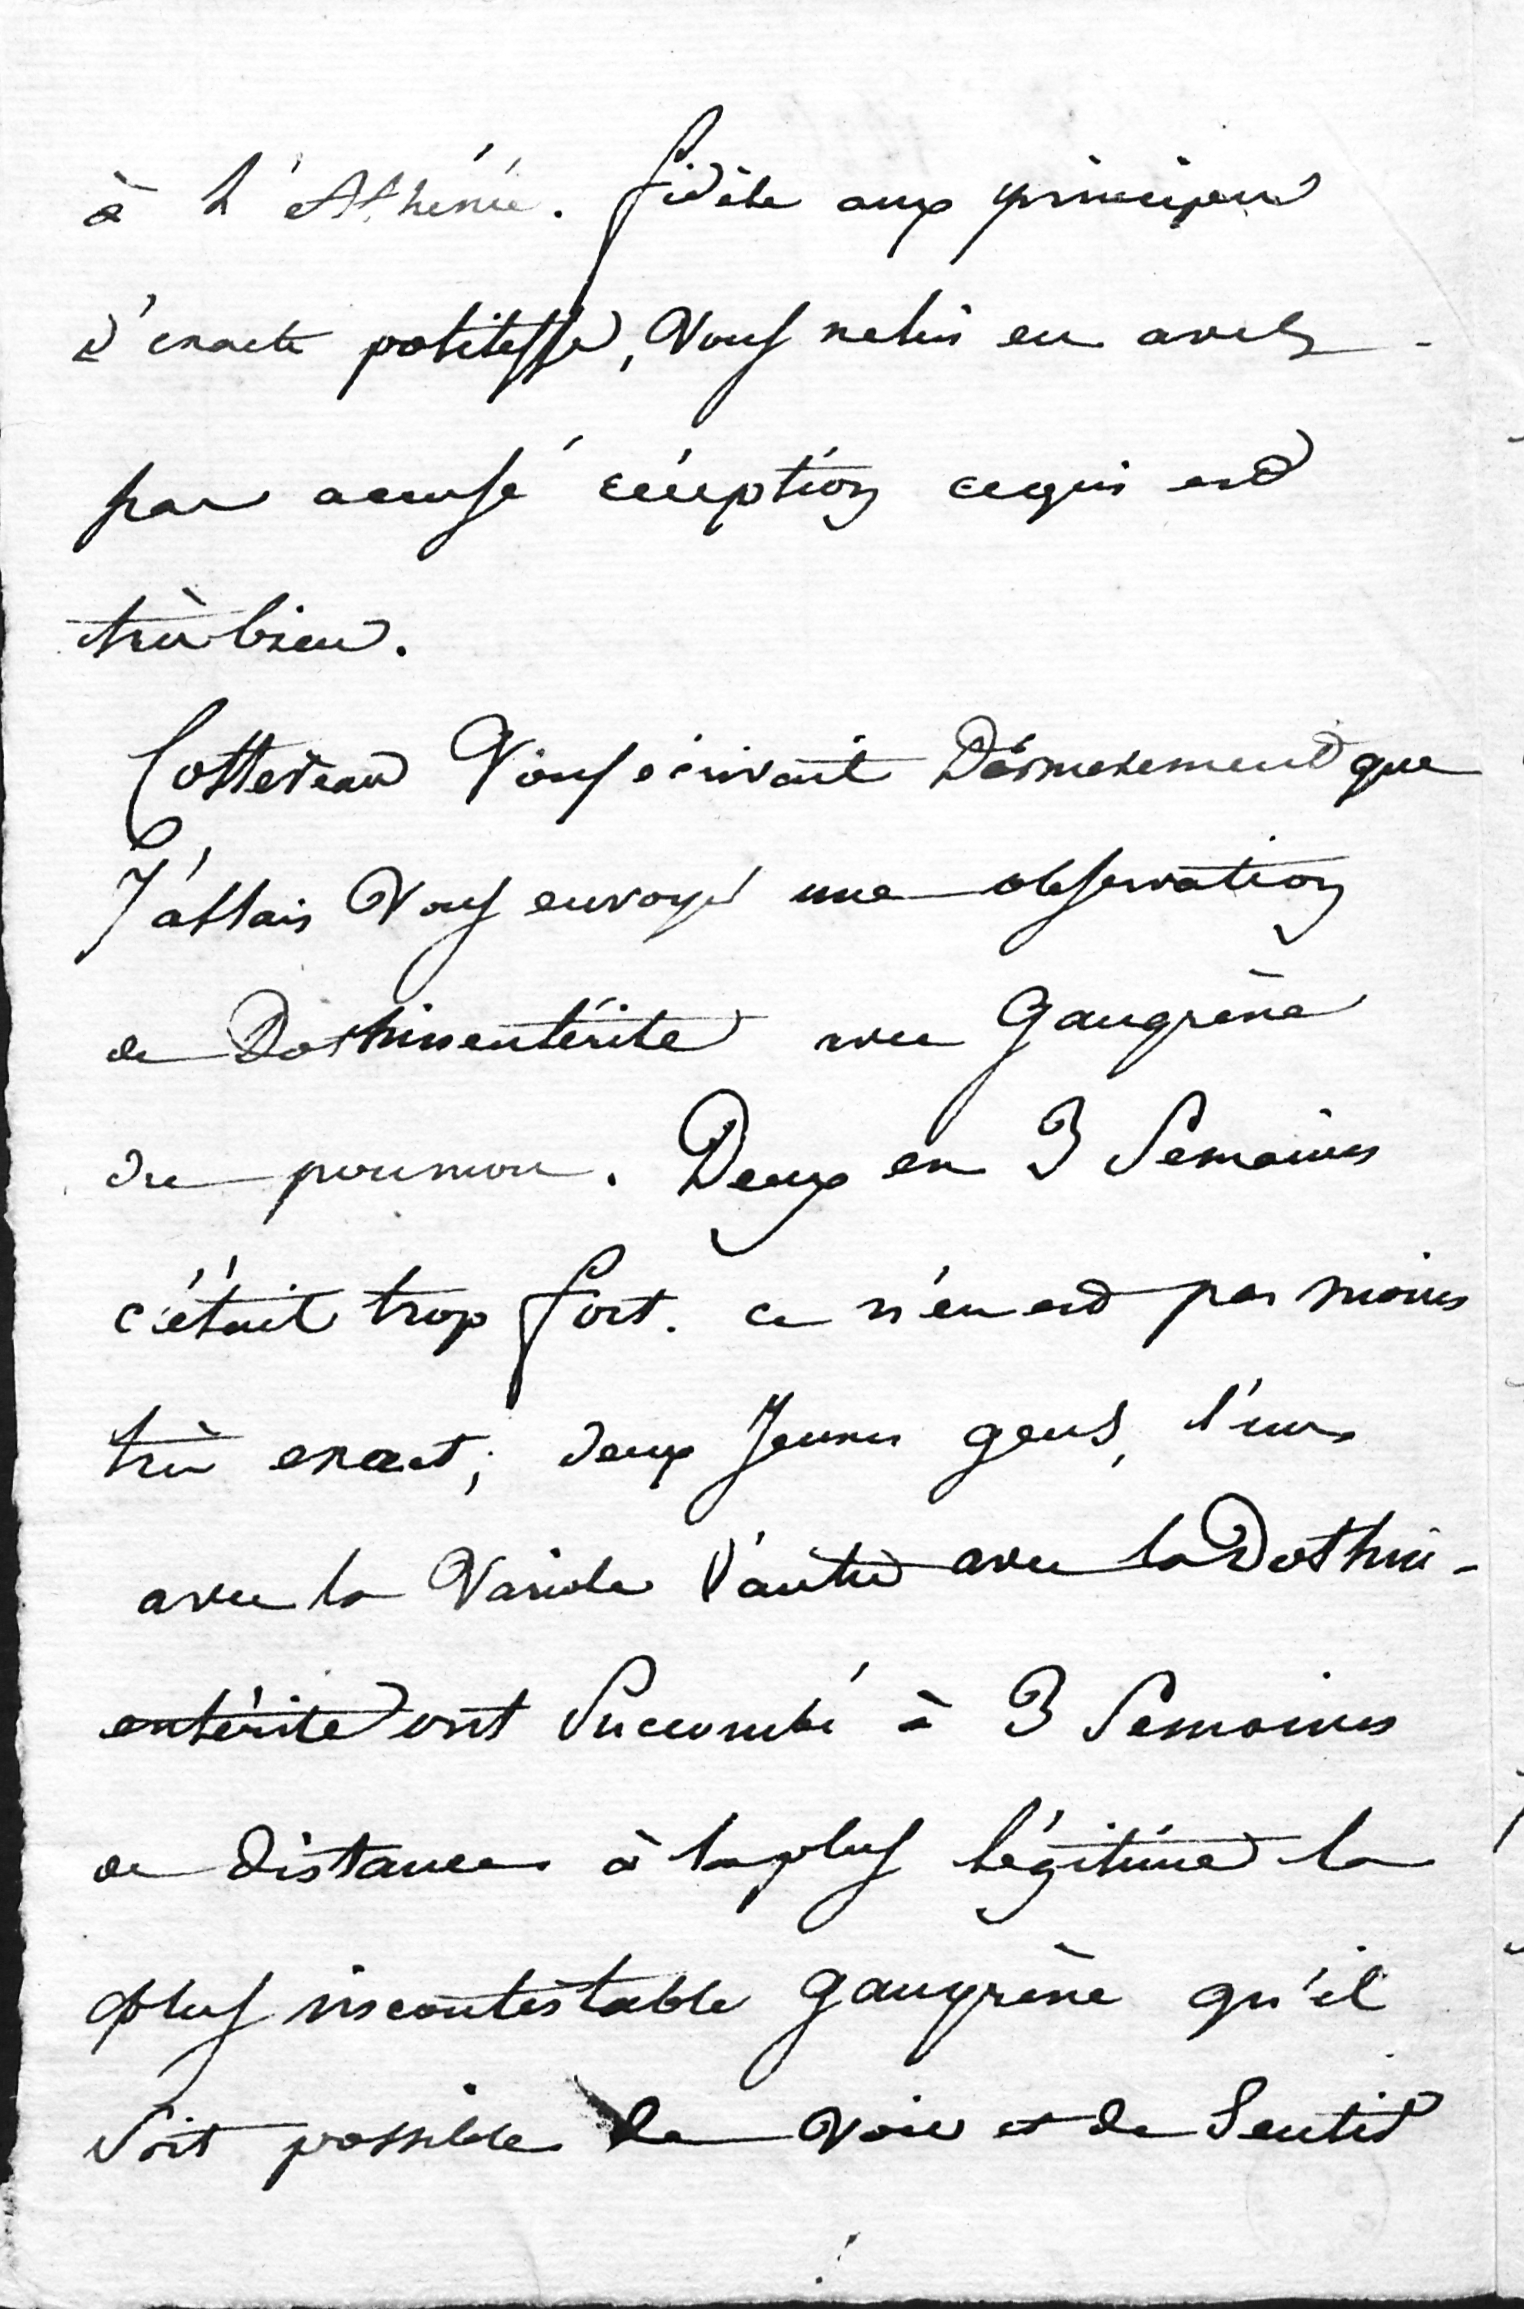 à L'Athénée. fidèle aux principes
d'exacte politesse, Vous ne lui en avez
pas accusé réception ce qui est
très bien.
Cottereau Vous écrivait dernierement que
J'allais Vous envoyer une observation
de Dothinentérite avec Gangrène
du poumon. Deux en 3 Semaines
c'était trop fort. ce n'en est pas moins
très exact; deux Jeunes gens, l'un
avec la Variole l'autre avec la Dothin-
entérite ont Succombé à 3 Semaines
de distance à la plus légitime la
plus incontestable gangrène qu'il
Soit possible de voir et de Sentir